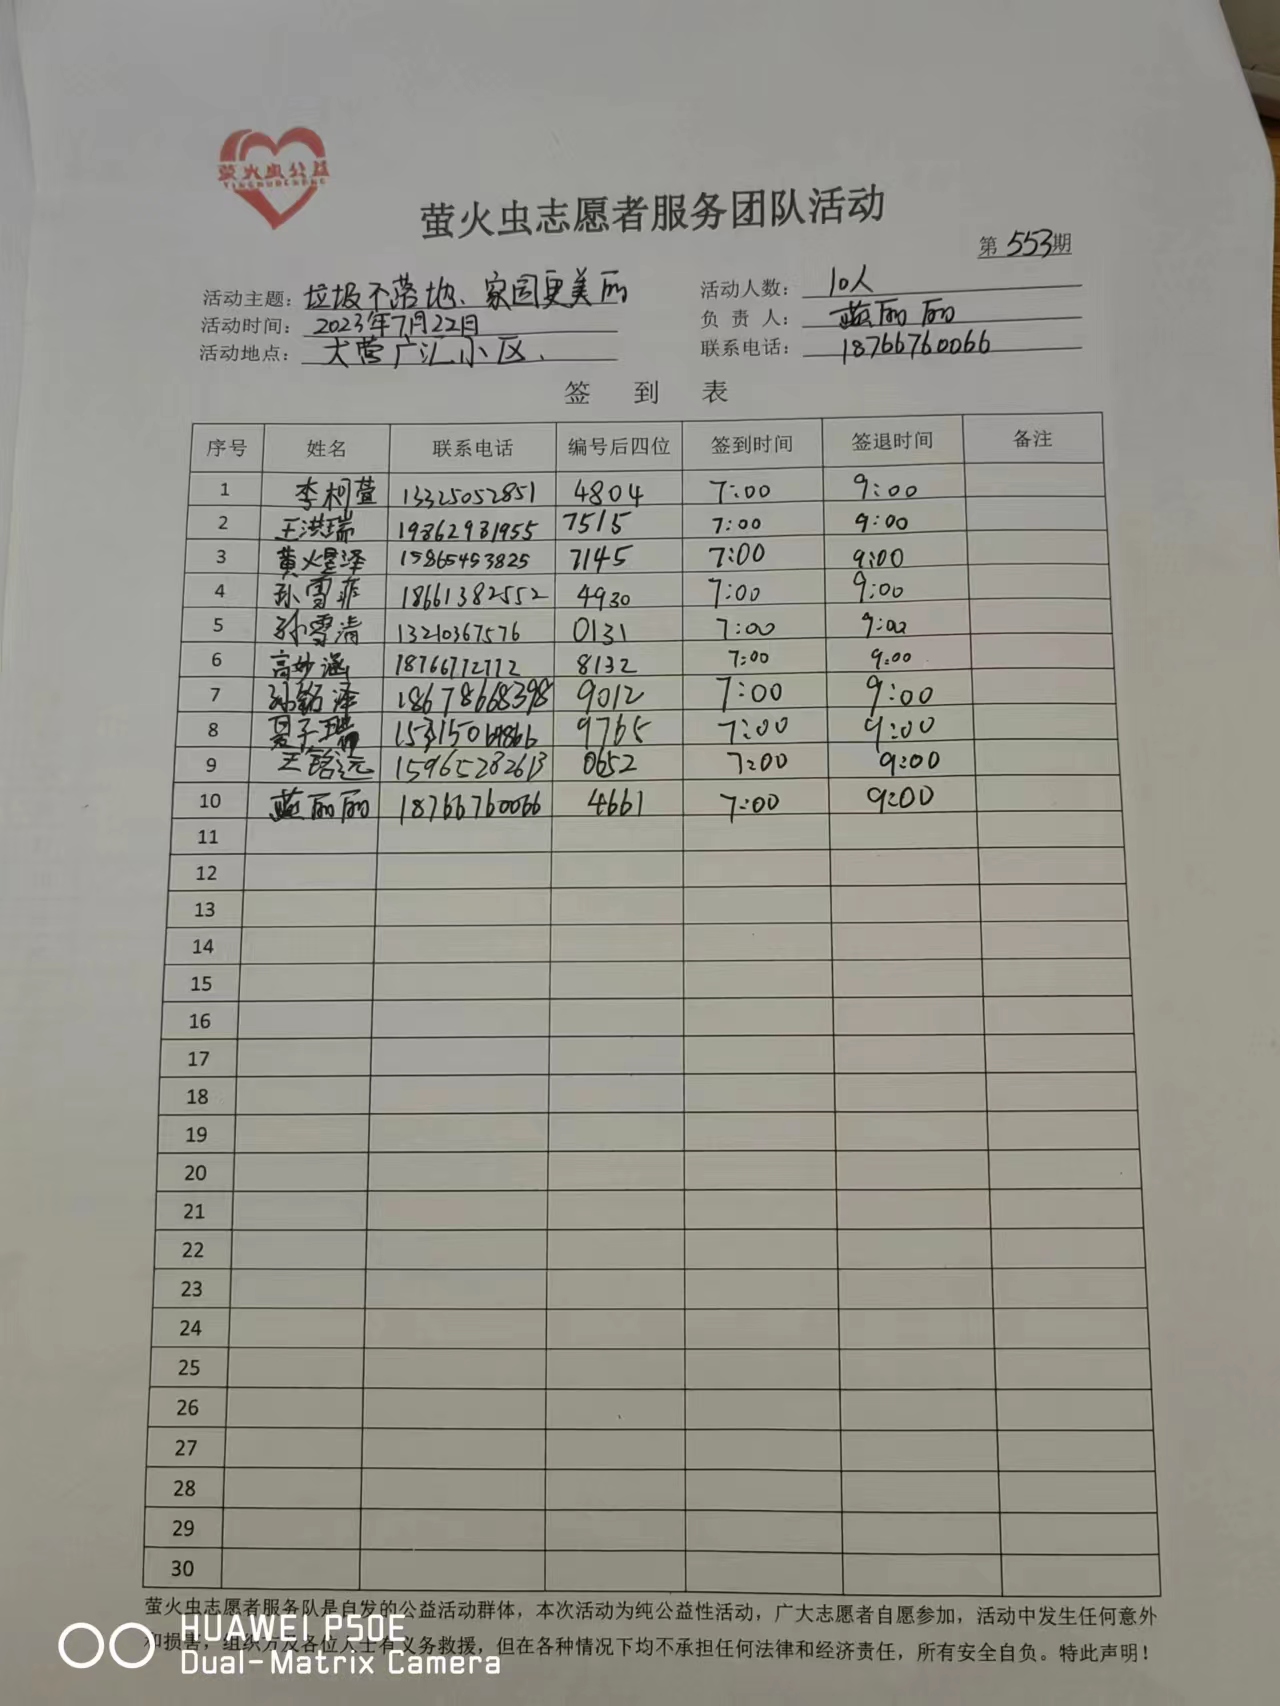 萤火虫公益
萤火虫志愿者服务团队活动
第 553期
活动主题：垃圾不落地、家园更美丽
活动人数：10人
活动时间：2023年7月22日
负责人：蓝丽丽
活动地点：大营广汇小区、
联系电话：18766760066
签到表
序号 姓名 联系电话 编号后四位 签到时间 签退时间 备注
1 李柯萱 13325052851 4804 7:00 9:00
2 王洪瑞 19862981955 7515 7:00 9:00
3 黄煜泽 15865453825 7145 7:00 9:00
4 孙雪菲 18661382552 4930 7:00 9:00
5 孙雪清 13210367576 0131 7:00 9:00
6 高妙涵 18766772772 8132 7:00 9:00
7 孙铭泽 18678668398 9012 7:00 9:00
8 子瑞 9765 7:00 9:00
9 王铭远 15965282613 0652 7:00 9:00
10 蓝丽丽 18766760066 4661 7:00 9:00
11
12
13
14
15
16
17
18
19
20
21
22
23
24
25
26
27
28
29
30
萤火虫志愿者服务队是自发的公益活动群体，本次活动为纯公益性活动，广大志愿者自愿参加，活动中发生任何意外
和损害，组织方及各位人士有义务救援，但在各种情况下均不承担任何法律和经济责任，所有安全自负。特此声明！
HUAWEI P50E
Dual-Matrix Camera